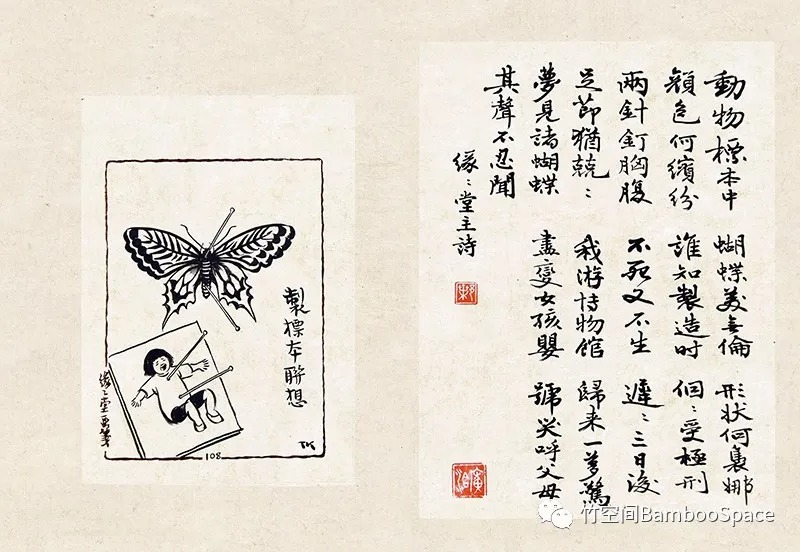 動物標本中 蝴蝶美無倫 形狀何裊娜
顏色何繽紛 誰知製造时 個〻受極刑
兩針釘胸腹 不死又不生 遲〻三日後
足節猶兢〻 我游博物館 歸来一夢驚
夢見諸蝴蝶 盡變女孩嬰 號哭呼父母
其聲不忍聞
緣〻堂主詩
製標本聯想
緣〻堂畫箋
TK
108
竹空间BambooSpace